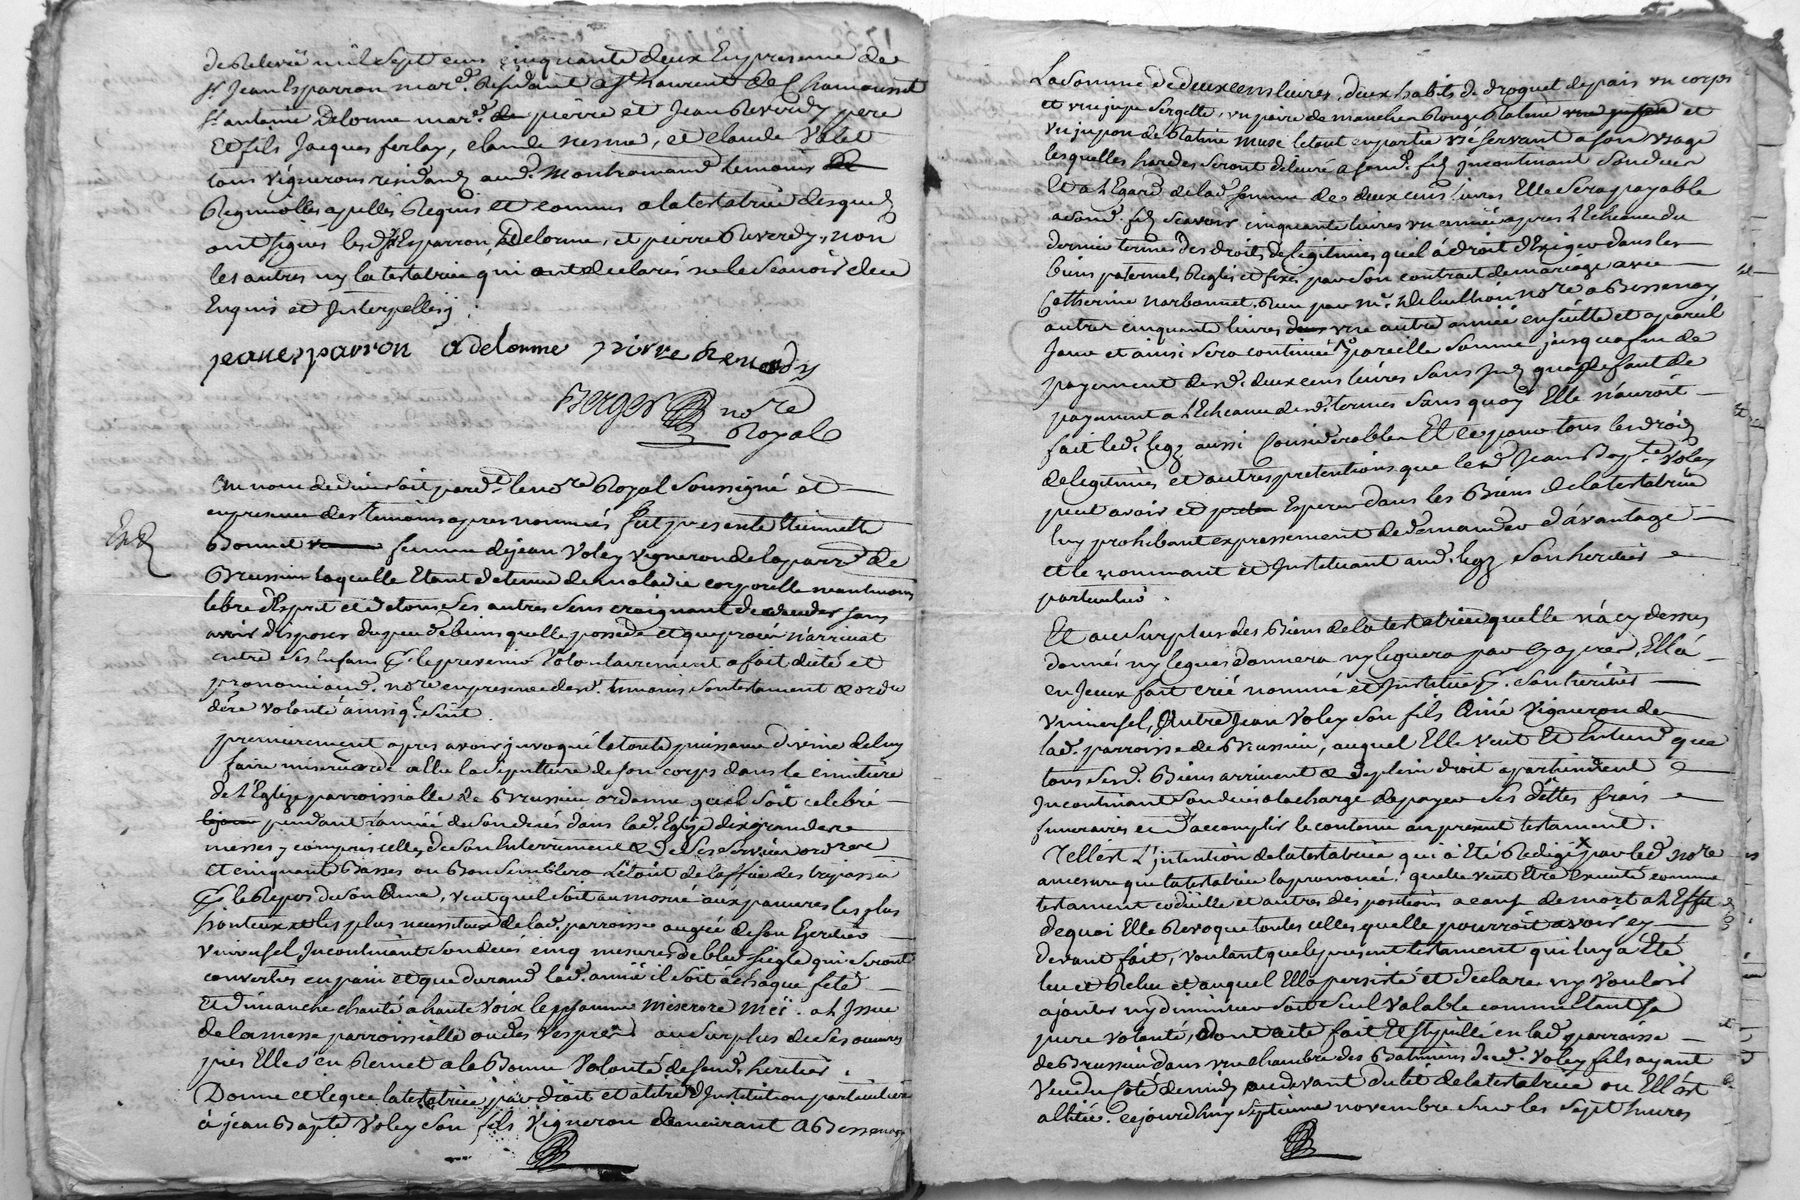 de relevé mil sept cens cinquante deux en presence de
Sr Jean Esparron mard. residant a St Laurent de Chamousset
Sr antoine Delorme mard. de pierre et Jean Reverdy pere
et fils Jacques ferlay, claude nesme, et claude Volet
tous vignerons residands aud. Montromand temoins
Regnicolles apellés Requis et connus a la testatrice desquels
ont signés lesd. Srs Esparron, Delorme, et pierre Reverdy, non
les autres ny la testatrice qui ont declarés ne le sçavoir de ce
Enquis et Interpellés.
jean esparron adelorme pierre reverdy
Berger nore
Royal
Au nom de dieu soit pard. le nore Royal soussigné et
en presence des temoins apres nommés fut presente Etiennette
Bonnet femme de jean Voley vigneron de la parre de
Brussieu laquelle Etant detenue de maladie corporelle neantmoins
libre d'Esprit et de tous ses autres sens craignant de deceder sans
avoir disposer du peu de biens quelle possede et que procés n'arrivat
entre ses Enfans pr. le prevenir Volontairement a fait dicté et
prononcé aud. nore en presence desd. temoins son testament & ordre
dere volonté ainsi q. suit
premierement apres avoir invoqué la toute puissance divine de luy
faire misericorde a Elle la sepulture de son corps dans le cimitiere
de l'Eglize parroissialle de Brussieu ordonne qu'il soit celebré
pendant l'année de son decés dans lad. Eglise dix grandere
messes y compris celles de son Enterrement & de ses services ordre
et cinquante Basses ou Bon semblera l'Etout de l'office des trepassés
pr. le Repos de son Ame, veut quil soit aumoné aux pauvres les plus
honteux et les plus necessiteux de lad. parroisse au gré de son heritier
Universel Incontinant son decés cinq mesures de bled siegle qui seront
converties en pain et que durand lad. année il soit a chaque fete
et dimanche chanté a haute voix le psaume Miserere Mei. a l'Issue
de la messe parroissialle ou des Vespres au surplus de ses œuvres
pies Elle s'en Remet a la Bonne Volonté de send. heritier.
Donne et legue la testatrice par droit et a titre d'Institution particuliere
à jean Bapte Voley son fils Vigneron demeurant a Bessenay
La somme de deux cens livres, deux habits de droguet de pais un corps
et une jupe sergette, un paire de manches Rouge Ratine et
un jupon de Ratine Musc le tout en partie usé servant a son usage
lesquelles hardes seront delivré a send. fils Incontinant son decés
Et a l'Egard de lad. somme de deux cens livres Elle sera payable
a send. fils sçavoir cinquante livres un année apres l'Echeance du
dernier terme des droits de legitimes quel a droit d'Exiger dans les
biens paternels Reglés et fixés par son contrat de mariage avec
Catherine narbonnet. Receu par me. nore a Bessenay
autres cinquante livres une autre année en suitte et a pareil
Jour et ainsi sera continué pareille somme jusqua fin de
payement desd. deux cens livres sans qua deffaut de
payement a l'Echeance desd. termes sans quoy Elle n'auroit
fait led. legs aussi Considerables Et ce pour tous les droits
de legitimes et autres pretentions que led. Jean Bapte Voley
peut avoir et Esperer dans les Biens de la testatrice
luy prohibant expressement de demander d'avantage
et le nommant et Instituant aud. legs son heritier
particulier.
Et au surplus des Biens de la testatrice quelle n'a cy dessus
donnés ny legues donnera ny leguera par cy apres, Ell'á
en Jceux fait créé nommé et Institué pr. son heritier
Universel, Autre Jean Voley son fils Ainé Vigneron de
lad. parroisse de Brussieu, auquel Elle veut Et Entend que
tous sesd. Biens arrivent & de plein droit apartiendront
Incontinant son decés a la charge de payer ses dettes frais
funeraires et d'accomplir le contenu au present testament.
Telle est L'intention de la testatrice qui à Eté Redigé par led. nore
a mesure que la testatrice la prononcé quelle veut Etre Executé comme
testament codicille et autres dispositions a cause de mort a l'Effet
de quoi Elle Revoque toutes celles quelle pourroit avoir cy
devant fait, voulant que le present testament qui luy a Eté
leu et Releu et auquel Ella persisté et declare ny vouloir
ajouter ny diminuer soit seul valable comme Etant sa
pure volonté, Dont acte fait & stypullé en lad. parroisse
de Brussieu dans une chambre des Batimens dud. Voley fils ayant
Vue du Coté de midy au devant du lit de la testatrice ou Ell'est
alitée. cejourdhuy septieme novembre sur les sept heures